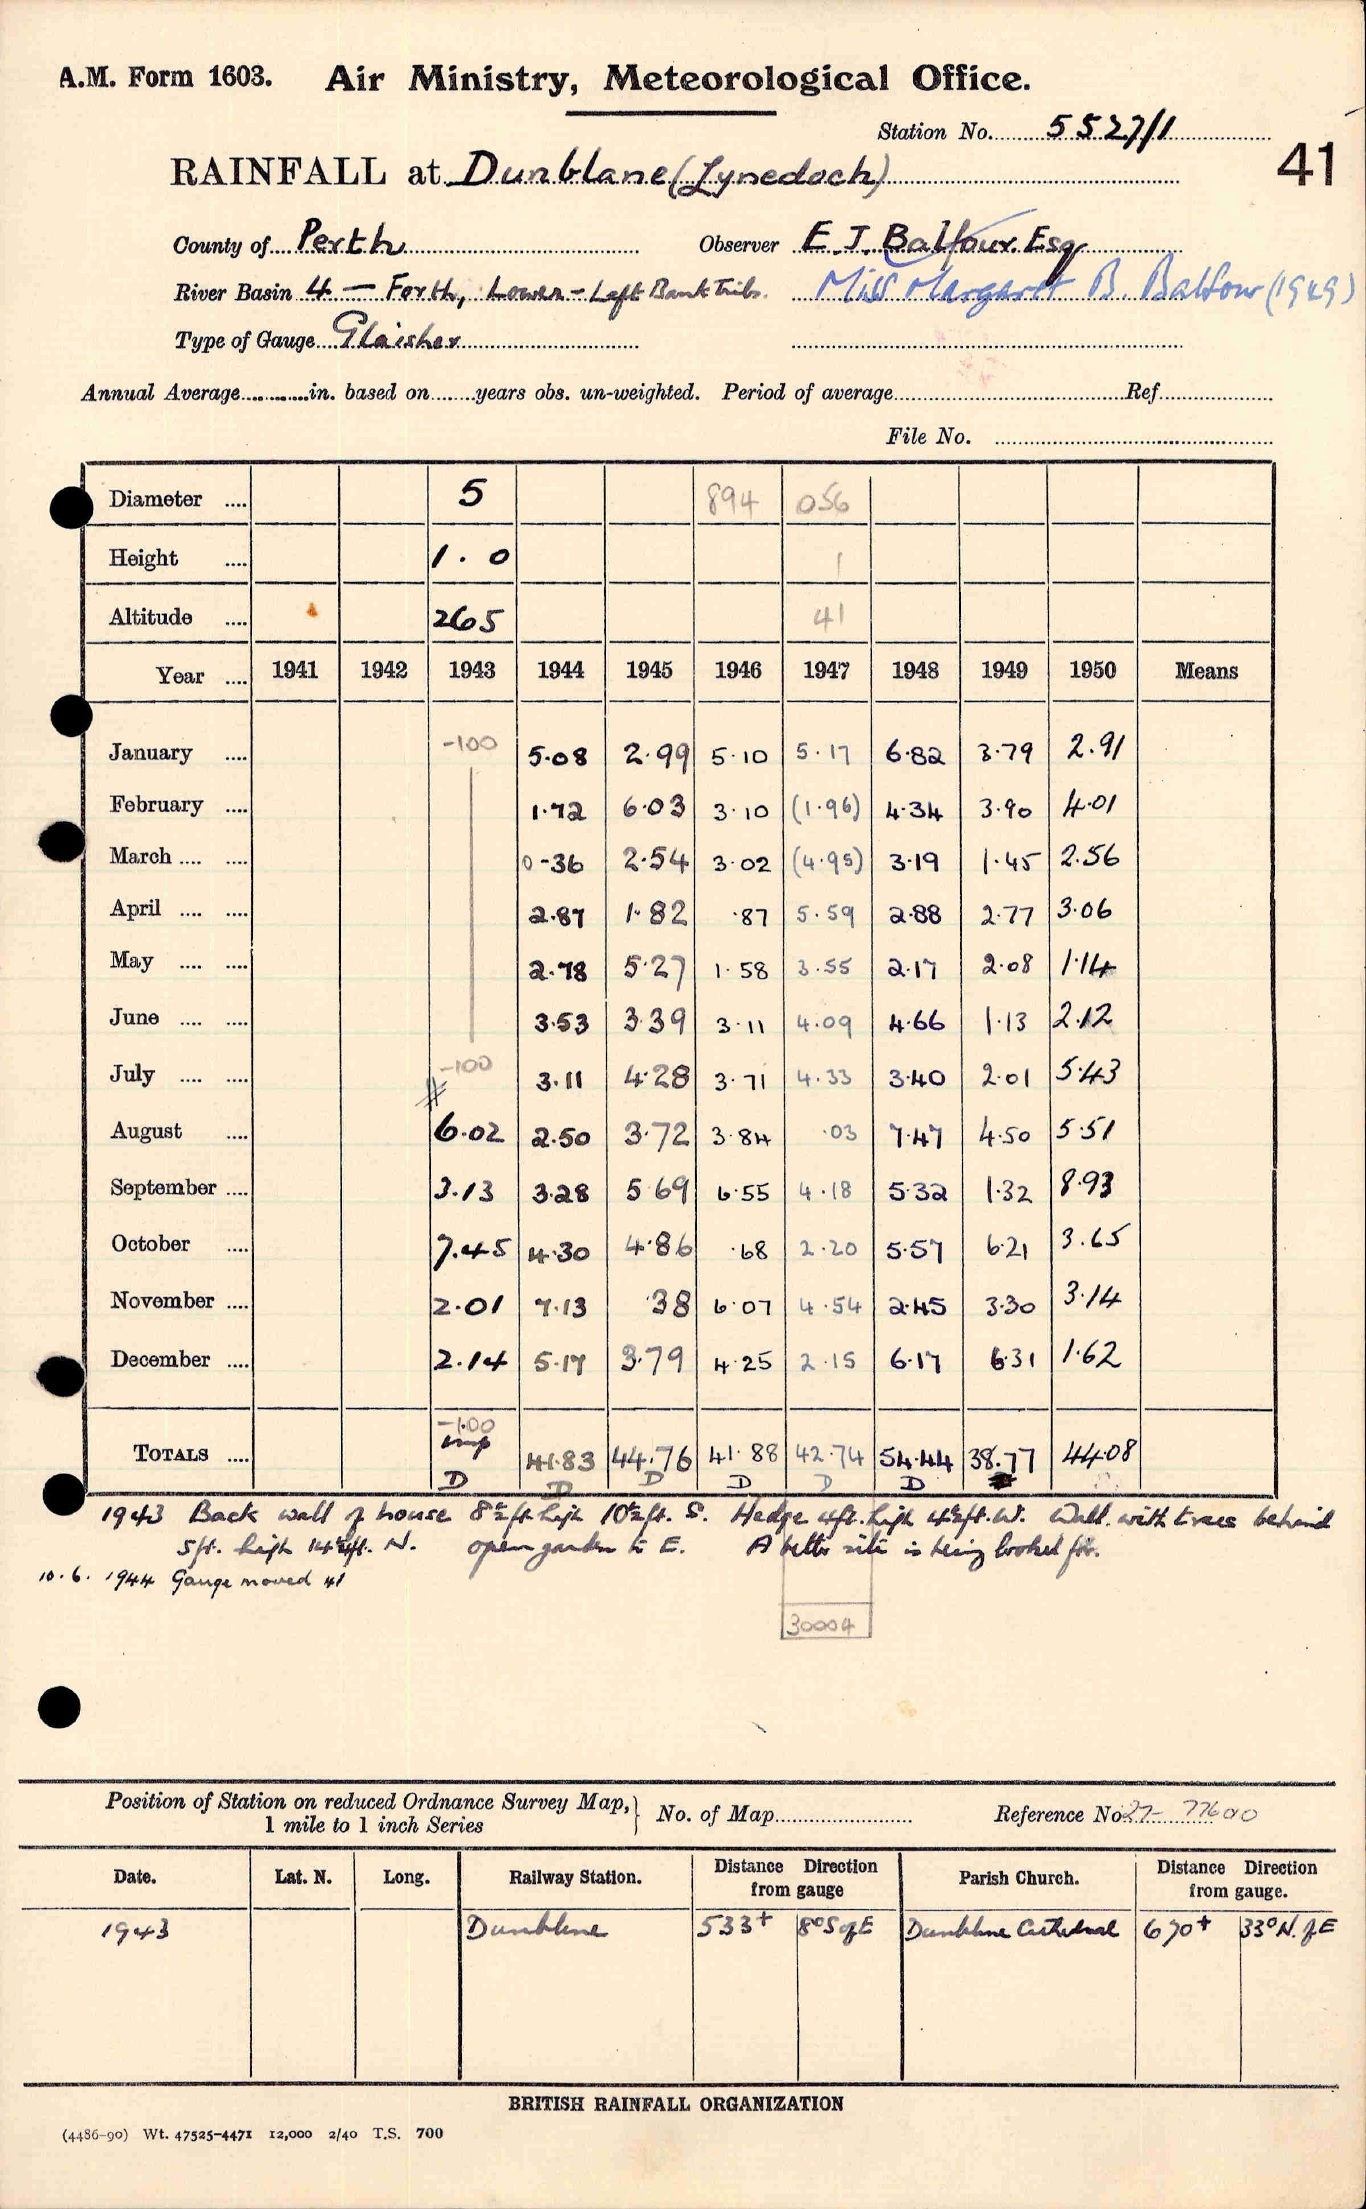 A.M. Form 1603. Air Ministry, Meteorological Office.
Station No. 5527/1
41
RAINFALL at Dunblane (Lynedoch)
County of Perth Observer E. J. Balfour. Esq
River Basin 4 — Forth, Lower - Left Bank Tribs. Miss Margaret B. Balfour (1949)
Type of Gauge Glaisher
Annual Average............in. based on........years obs. un-weighted. Period of average............Ref............
File No. ............
Diameter .... 5 894 056
Height .... 1.0 1
Altitude .... 265 41
Year .... 1941 1942 1943 1944 1945 1946 1947 1948 1949 1950 Means
January .... -100 5.08 2.99 5.10 5.17 6.82 3.79 2.91
February .... 1.72 6.03 3.10 (1.96) 4.34 3.90 4.01
March .... .... 0-36 2.54 3.02 (4.95) 3.19 1.45 2.56
April .... .... 2.87 1.82 .87 5.59 2.88 2.77 3.06
May .... .... 2.78 5.27 1.58 3.55 2.17 2.08 1.14
June .... .... 3.53 3.39 3.11 4.09 4.66 1.13 2.12
July .... .... -100 3.11 4.28 3.71 4.33 3.40 2.01 5.43
August .... 6.02 2.50 3.72 3.84 .03 7.47 4.50 5.51
September .... 3.13 3.28 5.69 6.55 4.18 5.32 1.32 8.93
October .... 7.45 4.30 4.86 .68 2.20 5.57 6.21 3.65
November .... 2.01 7.13 .38 6.07 4.54 2.45 3.30 3.14
December .... 2.14 5.17 3.79 4.25 2.15 6.17 6.31 1.62
-1.00
TOTALS .... imp 41.83 44.76 41.88 42.74 54.44 38.77 44.08
D D D D D D
1943 Back wall of house 8½ft high 10½ft. S. Hedge 4ft. high 4½ft. W. Wall with trees behind
5ft. high 14½ft. N. open garden to E. A better site is being looked for.
10.6.1944 Gauge moved
30004
Position of Station on reduced Ordnance Survey Map,
1 mile to 1 inch Series
No. of Map............ Reference No 27- 77600
Date. Lat. N. Long. Railway Station. Distance Direction from gauge Parish Church. Distance Direction from gauge.
1943 Dunblane 533+ 8° S of E Dunblane Cathedral 670+ 33° N. of E
BRITISH RAINFALL ORGANIZATION
(4486-90) Wt. 47525-4471 12,000 2/40 T.S. 700